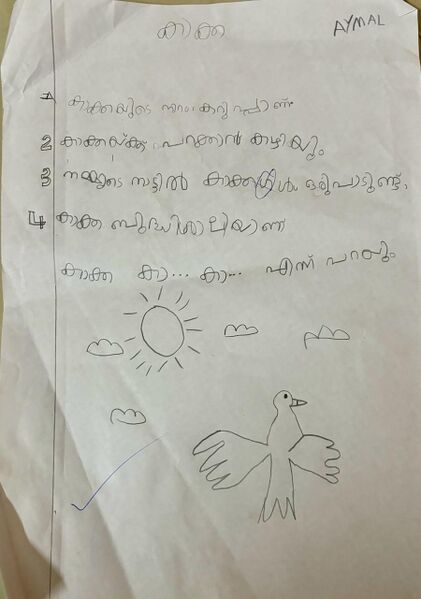 കാക്ക
AYMAL
1 കാക്കയുടെ നിറം കറുപ്പാണ്
2 കാക്കയ്ക്കു പറക്കാൻ കഴിയും
3 നമ്മുടെ നാട്ടിൽ കാക്കകൾ ഒരുപാടുണ്ട്.
4 കാക്ക ബുദ്ധിശാലിയാണ്
കാക്ക കാ... കാ... എന്ന് പറയും